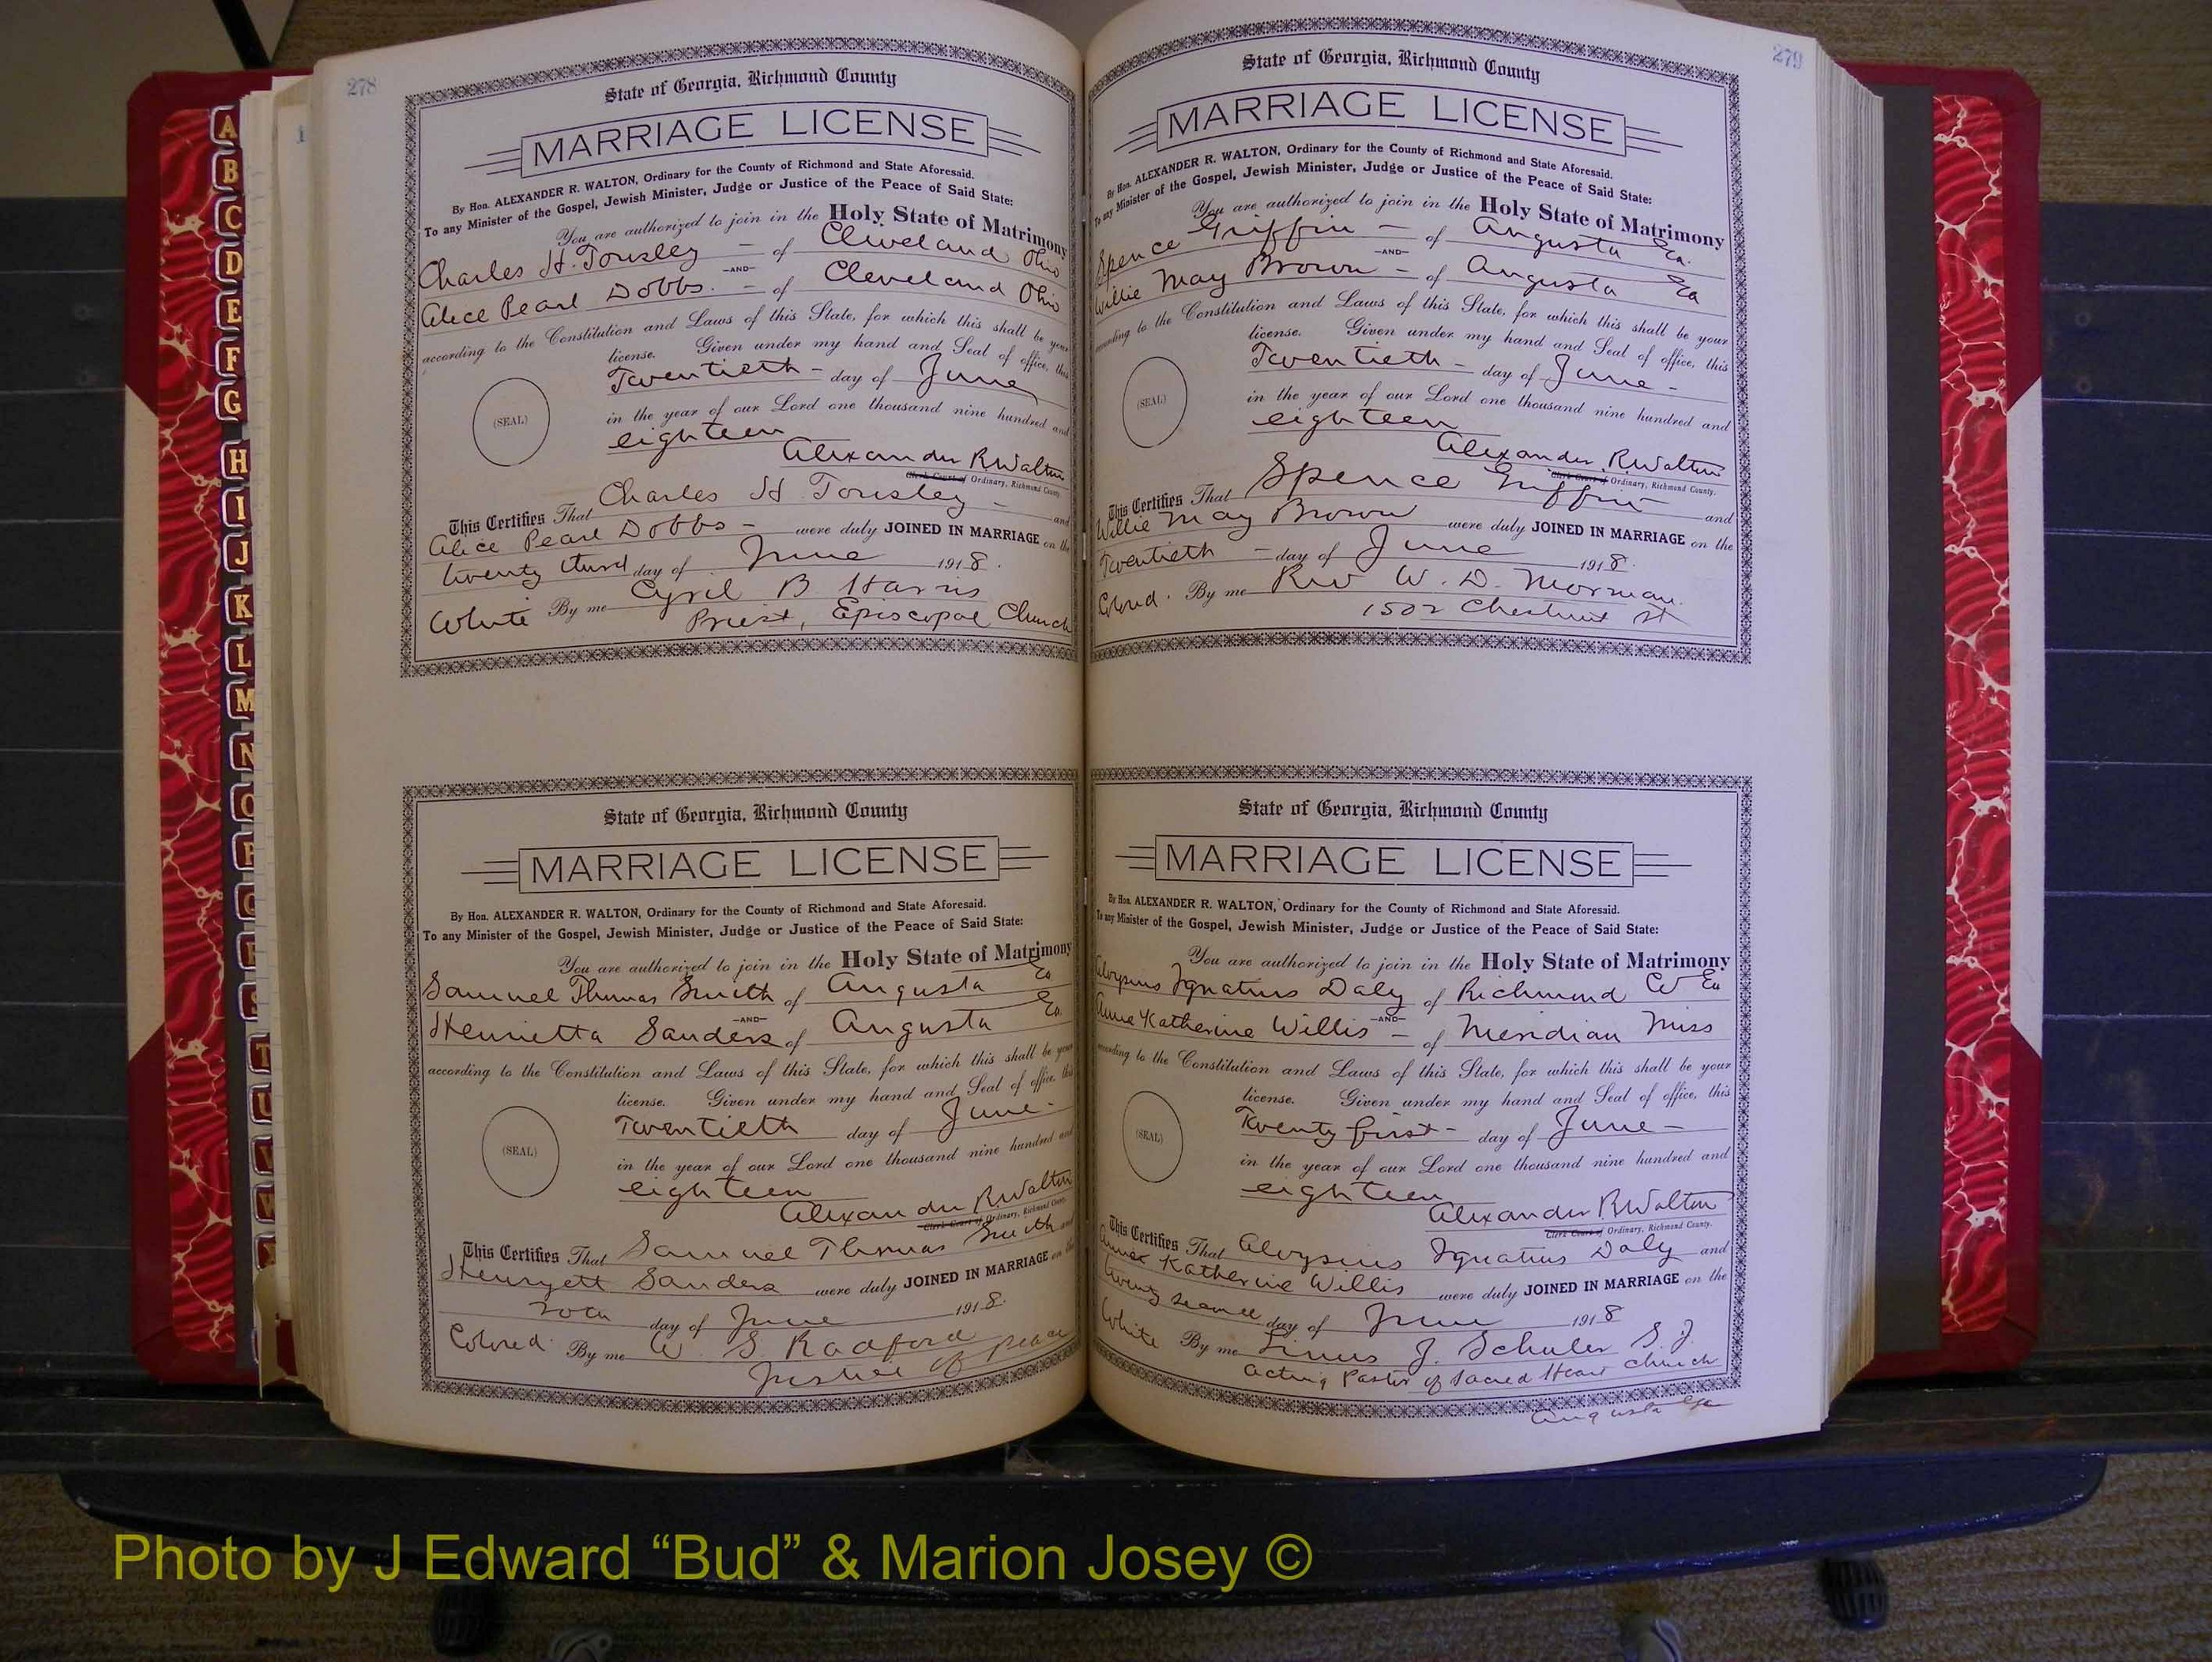 278
State of Georgia, Richmond County
MARRIAGE LICENSE
By Hon. ALEXANDER R. WALTON, Ordinary for the County of Richmond and State Aforesaid.
To any Minister of the Gospel, Jewish Minister, Judge or Justice of the Peace of Said State:
You are authorized to join in the Holy State of Matrimony
Charles H. Tousley - of Cleveland Ohio
-AND-
Alice Pearl Dobbs. - of Cleveland Ohio
according to the Constitution and Laws of this State, for which this shall be your
license. Given under my hand and Seal of office, this
Twentieth - day of June
(SEAL)
in the year of our Lord one thousand nine hundred and
eighteen
Alexander R Walton
Clerk Court of Ordinary, Richmond County.
This Certifies That Charles H Tousley - and
Alice Pearl Dobbs - were duly JOINED IN MARRIAGE on the
twenty third day of June 1918.
White By me Cyril B Harris
Priest, Episcopal Church
State of Georgia, Richmond County
MARRIAGE LICENSE
By Hon. ALEXANDER R. WALTON, Ordinary for the County of Richmond and State Aforesaid.
To any Minister of the Gospel, Jewish Minister, Judge or Justice of the Peace of Said State:
You are authorized to join in the Holy State of Matrimony
Samuel Thomas Smith of Augusta Ga
-AND-
Henrietta Sanders of Augusta Ga
according to the Constitution and Laws of this State, for which this shall be your
license. Given under my hand and Seal of office, this
Twentieth day of June-
(SEAL)
in the year of our Lord one thousand nine hundred and
eighteen
Alexander R. Walton
Clerk Court of Ordinary, Richmond County.
This Certifies That Samuel Thomas Smith and
Henryett Sanders were duly JOINED IN MARRIAGE on the
20th day of June 1918.
Colored. By me W. S. Radford
Justice of peace
279
State of Georgia, Richmond County
MARRIAGE LICENSE
By Hon. ALEXANDER R. WALTON, Ordinary for the County of Richmond and State Aforesaid.
To any Minister of the Gospel, Jewish Minister, Judge or Justice of the Peace of Said State:
You are authorized to join in the Holy State of Matrimony
Spence Griffin - of Augusta Ga.
-AND-
Willie May Brown - of Augusta Ga
according to the Constitution and Laws of this State, for which this shall be your
license. Given under my hand and Seal of office, this
Twentieth - day of June -
(SEAL)
in the year of our Lord one thousand nine hundred and
eighteen
Alexander R Walton
Clerk Court of Ordinary, Richmond County.
This Certifies That Spence Griffin and
Willie May Brown were duly JOINED IN MARRIAGE on the
Twentieth - day of June 1918.
Colored. By me Rev W. D. Morman.
1502 Chestnut St
State of Georgia, Richmond County
MARRIAGE LICENSE
By Hon. ALEXANDER R. WALTON, Ordinary for the County of Richmond and State Aforesaid.
To any Minister of the Gospel, Jewish Minister, Judge or Justice of the Peace of Said State:
You are authorized to join in the Holy State of Matrimony
Aloysius Ignatius Daly of Richmond Co Ga
-AND-
Anna Katherine Willis - of Meridian Miss
according to the Constitution and Laws of this State, for which this shall be your
license. Given under my hand and Seal of office, this
Twenty first - day of June -
(SEAL)
in the year of our Lord one thousand nine hundred and
eighteen
Alexander R Walton
Clerk Court of Ordinary, Richmond County.
This Certifies That Aloysius Ignatius Daly and
Anna Katherine Willis were duly JOINED IN MARRIAGE on the
twenty second day of June 1918
White By me Linus J. Schuler S. J.
acting Pastor of Sacred Heart church
Augusta Ga
A
B
C
D
E
F
G
H
I
J
K
L
M
N
O
P
Q
R
S
T
U
V
W
Photo by J Edward “Bud” & Marion Josey ©